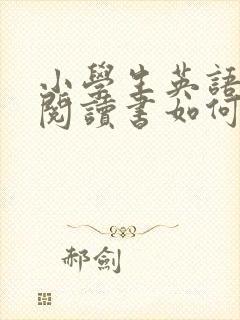 小學生英語
閱讀書如何
郝劍